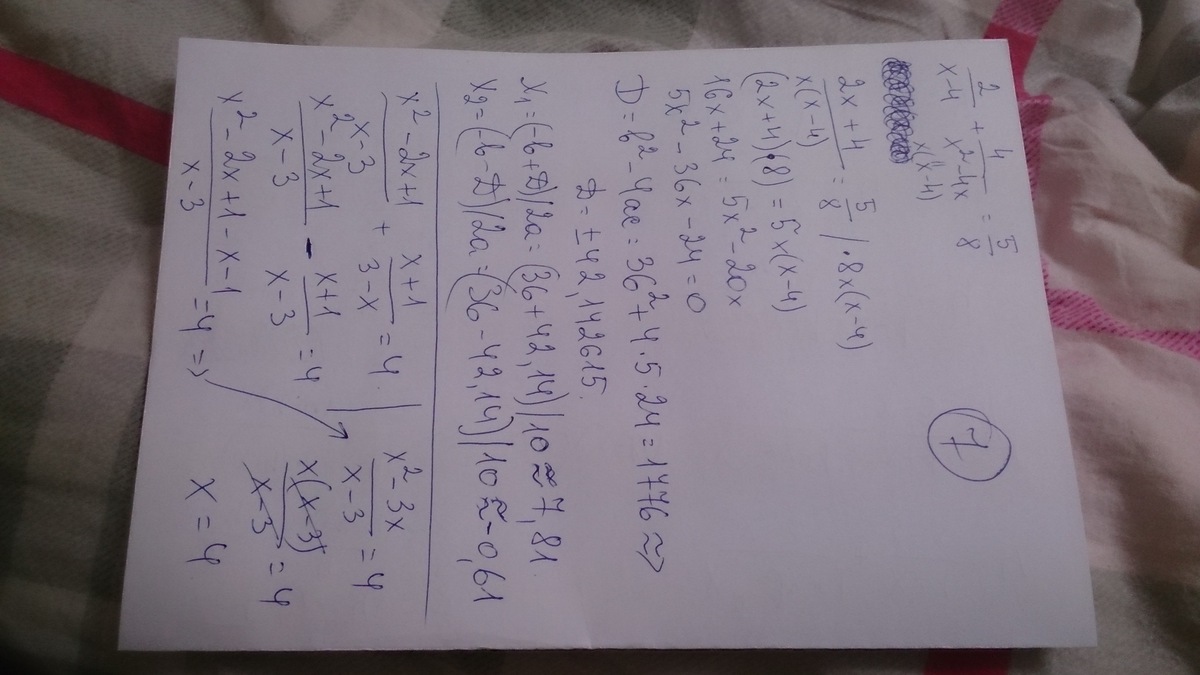 2/(x-4) + 4/(x²-4x) = 5/8
x(x-4)
7
(2x+4)/(x(x-4)) = 5/8 / ·8x(x-4)
(2x+4)·(8) = 5x(x-4)
16x+24 = 5x²-20x
5x²-36x-24=0
D=b²-4ac=36²+4·5·24=1776≈>
D=±42,142615.
X₁=(-b+D)/2a=(36+42,14)/10≈7,81
X₂=(-b-D)/2a=(36-42,14)/10≈-0,61
(x²-2x+1)/(x-3) + (x+1)/(3-x) = 4
(x²-2x+1)/(x-3) - (x+1)/(x-3) = 4
(x²-2x+1-x-1)/(x-3) = 4 =>
(x²-3x)/(x-3) = 4
x(x-3)/(x-3) = 4
X=4